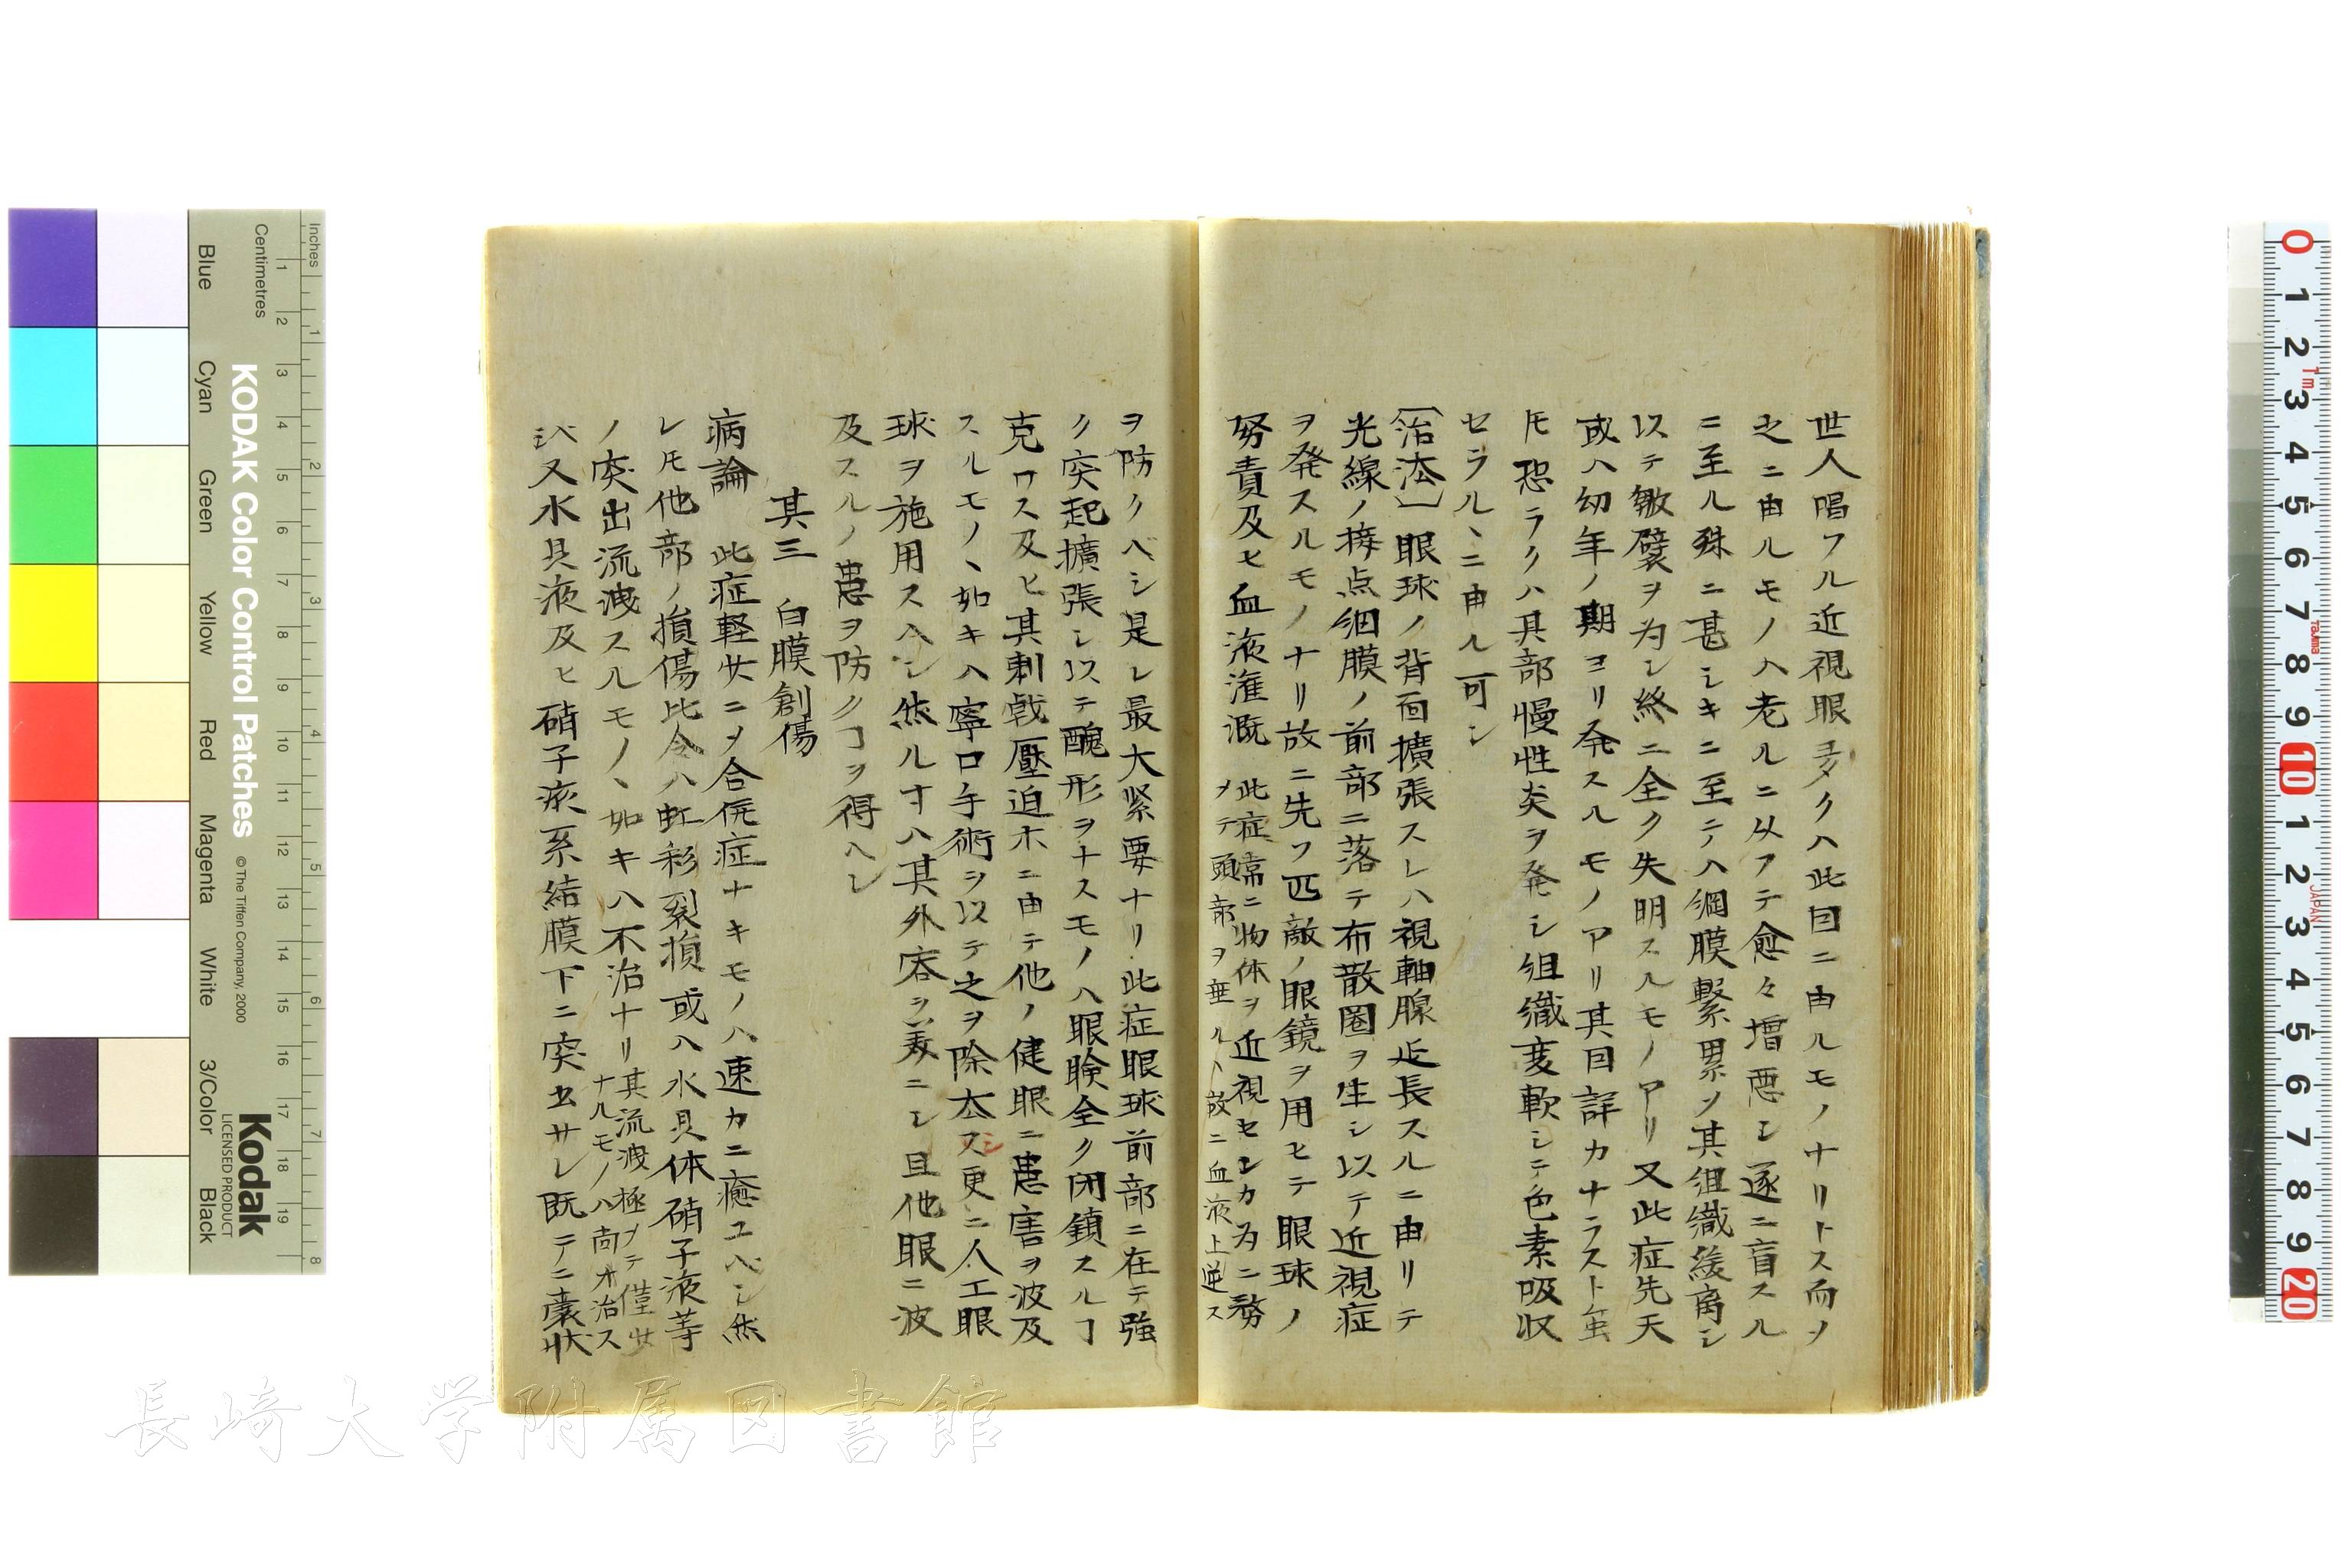 世人唱フル近視眼多クハ此因ニ由ルモノナリトス而ノ
之ニ由ルモノハ老ルニ从フテ愈々増悪シ遂ニ盲スル
ニ至ル殊ニ甚シキニ至テハ網膜緊累ノ其組織緩离シ
以テ皺襞ヲ为シ終ニ全ク失明スルモノアリ又此症先天
或ハ幼年ノ期ヨリ発スルモノアリ其因詳カナラスト虽
𪜈恐ラクハ其部慢性炎ヲ発シ組織変軟シテ色素吸収
セラルヽニ由ル可シ
〔治法〕眼球ノ背面擴張スレハ視軸腺延長スルニ由リテ
光線ノ接点網膜ノ前部ニ落テ布散圏ヲ生シ以テ近視症
ヲ発スルモノナリ故ニ先ツ匹敵ノ眼鏡ヲ用ヒテ眼球ノ
努責及ヒ血液潅漑
此症常ニ物体ヲ近視センカ为ニ務
メテ頭部ヲ垂ル、故ニ血液上逆ス
ヲ防クヘシ是レ最大緊要ナリ此症眼球前部ニ在テ強
ク突起擴張シ以テ醜形ヲナスモノハ眼瞼全ク閉鎖スルヿ
克ワス及ヒ其刺戟壓迫ホニ由テ他ノ健眼ニ患害ヲ波及
スルモノヽ如キハ寧ロ手術ヲ以テ之ヲ除去スシ更ニ人工眼
球ヲ施用スヘシ然ル寸ハ其外容ヲ美ニシ且他眼ニ波
及スルノ患ヲ防クヿヲ得ヘシ
其三 白膜創傷
病論 此症軽少ニノ合併症ナキモノハ速カニ癒ユヘシ然
レ𪜈他部ノ損傷比令ハ虹彩裂損或ハ水具体硝子液等
ノ突出流洩スルモノヽ如キハ不治ナリ
其流洩極メテ僅少
ナルモノハ尚ホ治ス
ト又水具液及ヒ硝子液系結膜下ニ突出サレ既テニ嚢状
Inches
Centimetres
KODAK Color Control Patches
© The Tiffen Company, 2000
Kodak
LICENSED PRODUCT
Blue
Cyan
Green
Yellow
Red
Magenta
White
3/Color
Black
長崎大学附属図書館